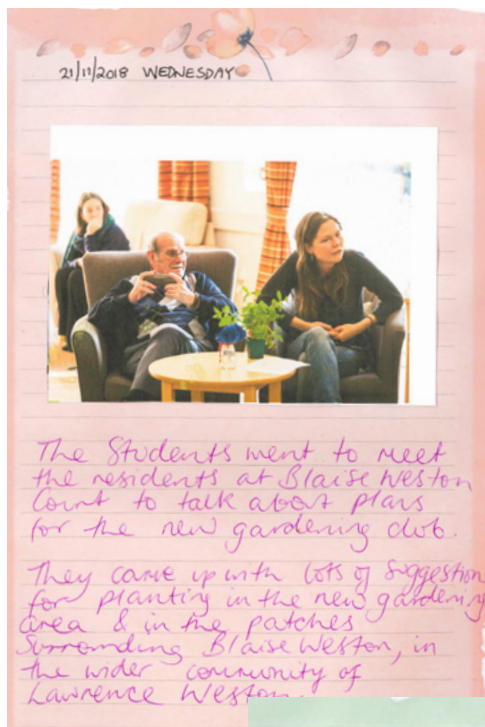 21/11/2018 WEDNESDAY
The Students went to meet
the residents at Blaise Weston
Court to talk about plans
for the new gardening club.
They came up with lots of suggestion
for planting in the new gardening
area & in the patches
Surrounding Blaise Weston, in
the wider community of
Lawrence Weston.